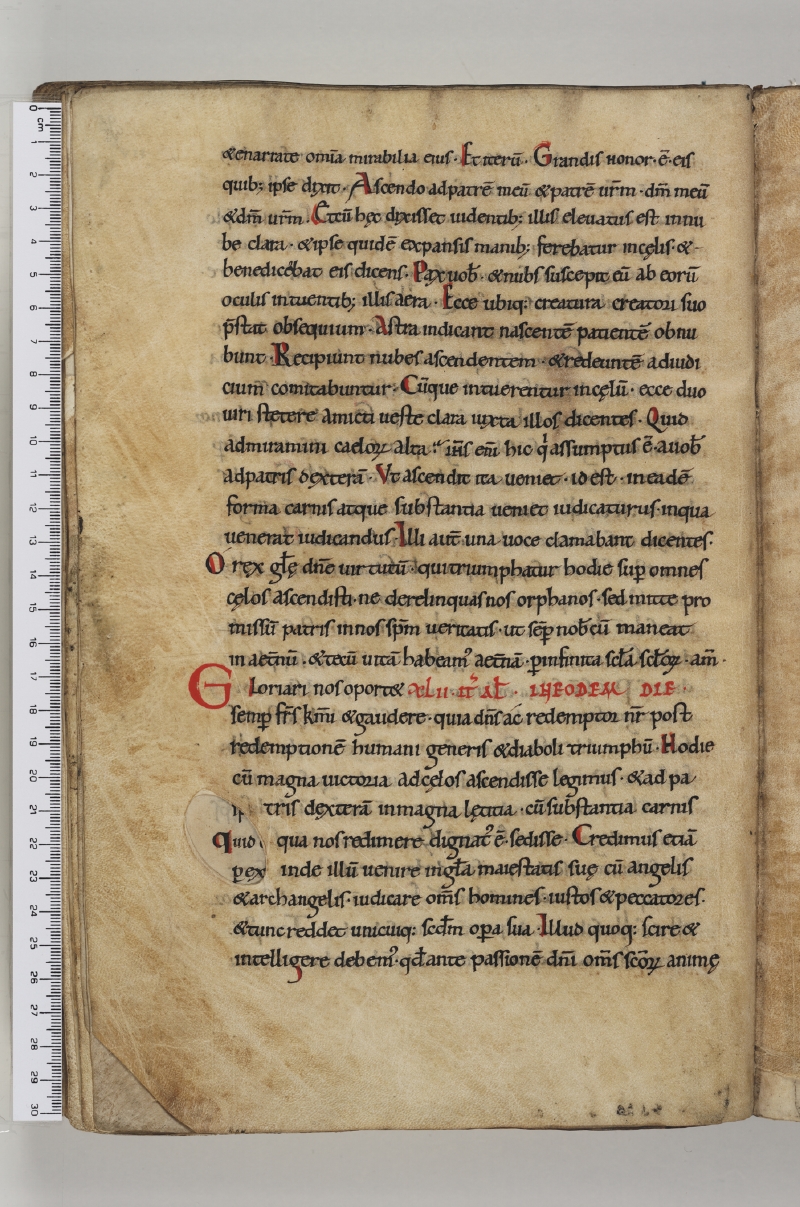 &enarrate om̄ia mirabilia eius· Et iterū· Grandis honor· ē· eis
quib; ipse dixit· Ascendo ad patrē meū & patrē ur̄m· dm̄ meū
& dm̄ ur̄m· Et cū hęc dixisset uidentib; illis eleuatus est in nu
be clara· & ipse quidē expansis manib; ferebatur in cęlis· &
benedicebat eis dicens· Pax uob̄· & nubs suscepit eū ab eorū
oculis intuentib; illis aera· Ecce ubiq; creatura creatori suo
p̄stat obsequium· Astra indicant nascentē patientē obnu
bunt· Recipiunt nubes ascendentem· & redeuntē ad iudi
cium comitabuntur· Cūque intuerentur in cęlū· ecce duo
uiri stetere amicti ueste clara iuxta illos dicentes· Quid
admiramini caeloꝝ alta· ih̄s em̄ hic qͥ assumptus ē· a uob̄
ad patris dexterā· Vt ascendit ita ueniet· id est· in eadē
forma carnis atque substantia ueniet iudicaturus· in qua
uenerat iudicandus· Illi aut̄ una uoce clamabant dicentes·
O rex gl̄ę dn̄e uirtutū· qui triumphatur hodie sup̄ omnes
cęlos ascendisti· ne derelinquas nos orphanos· sed mitte pro
missū patris in nos sp̄m ueritatis· ut sēp nob̄cū maneat
in aet̄nū· & tecū uitā habeam᷒ aet̄nā· p̄ infinita scl̄a scl̄oꝝ· am̄·
Gloriari nos oport& IN EODEM DIE·
semp̄ fr̄s km̄i & gaudere· quia dn̄s ac redemptor nr̄ post
redemptionē humani generis & diaboli triumphū· Hodie
cū magna uictoria ad cęlos ascendisse legimus· & ad pa
tris dexterā in magna lętitia· cū substantia carnis
quid qua nos redimere dignat᷒ ē· sedisse· Credimus etiā
ꝑ ex inde illū uenire in gl̄a maiestatis suę cū angelis
& archangelis· iudicare om̄s homines· iustos & peccatores·
& tunc reddet unicuiq; scd̄m op̄a sua· Illud quoq; scire &
intelligere debem᷒· qd̄ ante passionē dn̄i om̄s sc̄oꝝ animę